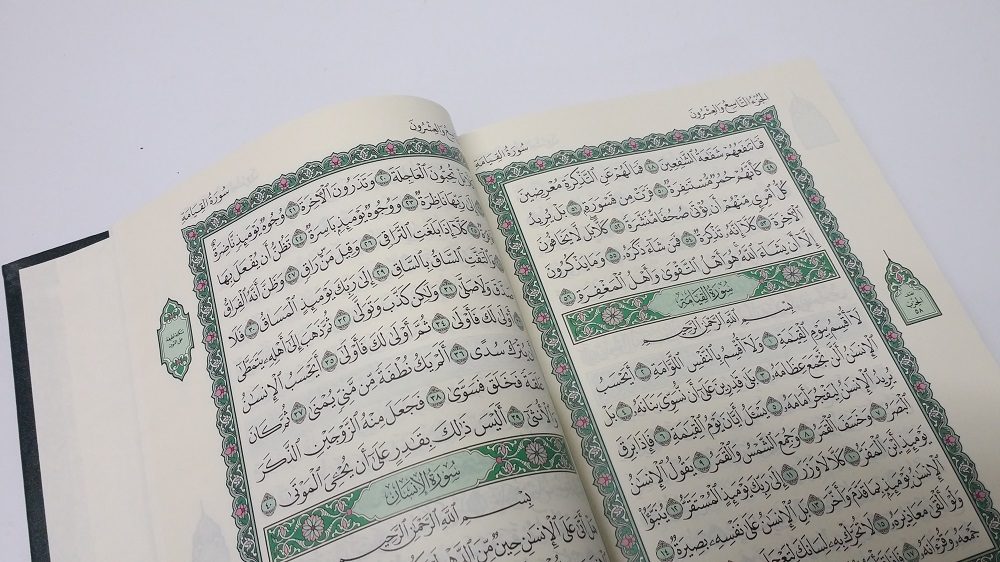 الجُزْءُ التَّاسِعُ وَالعِشْرُونَ
سُورَةُ القِيَامَةِ
فَمَا تَنفَعُهُمْ شَفَٰعَةُ ٱلشَّٰفِعِينَ ٤٨ فَمَا لَهُمْ عَنِ ٱلتَّذْكِرَةِ مُعْرِضِينَ
٤٩ كَأَنَّهُمْ حُمُرٌ مُّسْتَنفِرَةٌ ٥٠ فَرَّتْ مِن قَسْوَرَةٍ ٥١ بَلْ يُرِيدُ
كُلُّ ٱمْرِئٍ مِّنْهُمْ أَن يُؤْتَىٰ صُحُفًا مُّنَشَّرَةً ٥٢ كَلَّا بَل لَّا يَخَافُونَ
ٱلْءَاخِرَةَ ٥٣ كَلَّآ إِنَّهُۥ تَذْكِرَةٌ ٥٤ فَمَن شَآءَ ذَكَرَهُۥ ٥٥ وَمَا يَذْكُرُونَ
إِلَّآ أَن يَشَآءَ ٱللَّهُ هُوَ أَهْلُ ٱلتَّقْوَىٰ وَأَهْلُ ٱلْمَغْفِرَةِ ٥٦
سُورَةُ القِيَامَةِ
بِسْمِ ٱللَّهِ ٱلرَّحْمَٰنِ ٱلرَّحِيمِ
لَآ أُقْسِمُ بِيَوْمِ ٱلْقِيَٰمَةِ ١ وَلَآ أُقْسِمُ بِٱلنَّفْسِ ٱللَّوَّامَةِ ٢ أَيَحْسَبُ
ٱلْإِنسَٰنُ أَلَّن نَّجْمَعَ عِظَامَهُۥ ٣ بَلَىٰ قَٰدِرِينَ عَلَىٰٓ أَن نُّسَوِّىَ بَنَانَهُۥ ٤ بَلْ
يُرِيدُ ٱلْإِنسَٰنُ لِيَفْجُرَ أَمَامَهُۥ ٥ يَسْـَٔلُ أَيَّانَ يَوْمُ ٱلْقِيَٰمَةِ ٦ فَإِذَا بَرِقَ
ٱلْبَصَرُ ٧ وَخَسَفَ ٱلْقَمَرُ ٨ وَجُمِعَ ٱلشَّمْسُ وَٱلْقَمَرُ ٩ يَقُولُ ٱلْإِنسَٰنُ
يَوْمَئِذٍ أَيْنَ ٱلْمَفَرُّ ١٠ كَلَّا لَا وَزَرَ ١١ إِلَىٰ رَبِّكَ يَوْمَئِذٍ ٱلْمُسْتَقَرُّ ١٢ يُنَبَّؤُا۟
ٱلْإِنسَٰنُ يَوْمَئِذٍۭ بِمَا قَدَّمَ وَأَخَّرَ ١٣ بَلِ ٱلْإِنسَٰنُ عَلَىٰ نَفْسِهِۦ بَصِيرَةٌ ١٤
وَلَوْ أَلْقَىٰ مَعَاذِيرَهُۥ ١٥ لَا تُحَرِّكْ بِهِۦ لِسَانَكَ لِتَعْجَلَ
جَمْعَهُۥ وَقُرْءَانَهُۥ ١٧ فَإِذَا
٥٨
وَالعِشْرُونَ
سُورَةُ القِيَامَةِ
تُحِبُّونَ ٱلْعَاجِلَةَ ٢٠ وَتَذَرُونَ ٱلْءَاخِرَةَ ٢١ وُجُوهٌ يَوْمَئِذٍ نَّاضِرَةٌ
إِلَىٰ رَبِّهَا نَاظِرَةٌ ٢٣ وَوُجُوهٌ يَوْمَئِذٍۭ بَاسِرَةٌ ٢٤ تَظُنُّ أَن يُفْعَلَ بِهَا
كَلَّآ إِذَا بَلَغَتِ ٱلتَّرَاقِىَ ٢٦ وَقِيلَ مَنْ رَاقٍ ٢٧ وَظَنَّ أَنَّهُ ٱلْفِرَاقُ
ٱلْتَفَّتِ ٱلسَّاقُ بِٱلسَّاقِ ٢٩ إِلَىٰ رَبِّكَ يَوْمَئِذٍ ٱلْمَسَاقُ ٣٠ فَلَا
صَدَّقَ وَلَا صَلَّىٰ ٣١ وَلَٰكِن كَذَّبَ وَتَوَلَّىٰ ٣٢ ثُمَّ ذَهَبَ إِلَىٰٓ أَهْلِهِۦ يَتَمَطَّىٰٓ
لَكَ فَأَوْلَىٰ ٣٤ ثُمَّ أَوْلَىٰ لَكَ فَأَوْلَىٰٓ ٣٥ أَيَحْسَبُ ٱلْإِنسَٰنُ
يُتْرَكَ سُدًى ٣٦ أَلَمْ يَكُ نُطْفَةً مِّن مَّنِىٍّ يُمْنَىٰ ٣٧ ثُمَّ كَانَ
عَلَقَةً فَخَلَقَ فَسَوَّىٰ ٣٨ فَجَعَلَ مِنْهُ ٱلزَّوْجَيْنِ ٱلذَّكَرَ
وَٱلْأُنثَىٰٓ ٣٩ أَلَيْسَ ذَٰلِكَ بِقَٰدِرٍ عَلَىٰٓ أَن يُحْـِۧىَ ٱلْمَوْتَىٰ ٤٠
سُورَةُ الإِنسَانِ
بِسْمِ ٱللَّهِ ٱلرَّحْمَٰنِ ٱلرَّحِيمِ
أَتَىٰ عَلَى ٱلْإِنسَٰنِ حِينٌ مِّنَ ٱلدَّهْرِ